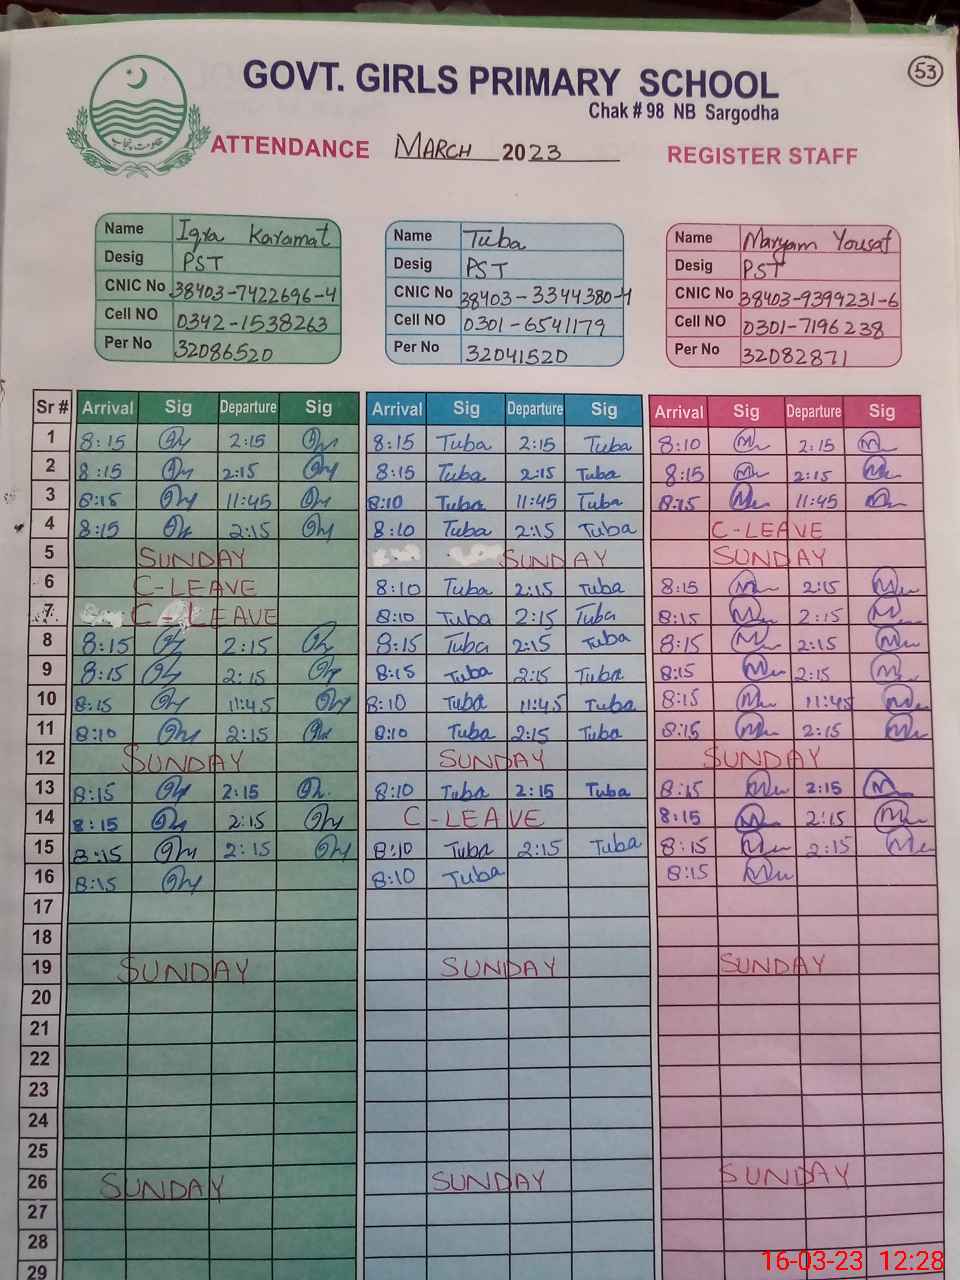 53
GOVT. GIRLS PRIMARY SCHOOL
Chak # 98 NB Sargodha
حکومت پنجاب
ATTENDANCE MARCH 2023 REGISTER STAFF
Name Iqra Karamat Name Tuba Name Maryam Yousaf
Desig PST Desig PST Desig PST
CNIC No 38403-7422696-4 CNIC No 38403-3344380-4 CNIC No 38403-9399231-6
Cell NO 0342-1538263 Cell NO 0301-6541179 Cell NO 0301-7196238
Per No 32086520 Per No 32041520 Per No 32082871
Sr # Arrival Sig Departure Sig Arrival Sig Departure Sig Arrival Sig Departure Sig
1 8:15 2:15 8:15 Tuba 2:15 Tuba 8:10 2:15
2 8:15 2:15 8:15 Tuba 2:15 Tuba 8:15 2:15
3 8:15 11:45 8:10 Tuba 11:45 Tuba 8:15 11:45
4 8:15 2:15 8:10 Tuba 2:15 Tuba C-LEAVE
5 SUNDAY SUNDAY SUNDAY
6 C-LEAVE 8:10 Tuba 2:15 Tuba 8:15 2:15
7 C-LEAVE 8:10 Tuba 2:15 Tuba 8:15 2:15
8 8:15 2:15 8:15 Tuba 2:15 Tuba 8:15 2:15
9 8:15 2:15 8:15 Tuba 2:15 Tuba 8:15 2:15
10 8:15 11:45 8:10 Tuba 11:45 Tuba 8:15 11:45
11 8:10 2:15 8:10 Tuba 2:15 Tuba 8:15 2:15
12 SUNDAY SUNDAY SUNDAY
13 8:15 2:15 8:10 Tuba 2:15 Tuba 8:15 2:15
14 8:15 2:15 C-LEAVE 8:15 2:15
15 8:15 2:15 8:10 Tuba 2:15 Tuba 8:15 2:15
16 8:15 8:10 Tuba 8:15
17
18
19 SUNDAY SUNDAY SUNDAY
20
21
22
23
24
25
26 SUNDAY SUNDAY SUNDAY
27
28
29
16-03-23 12:28